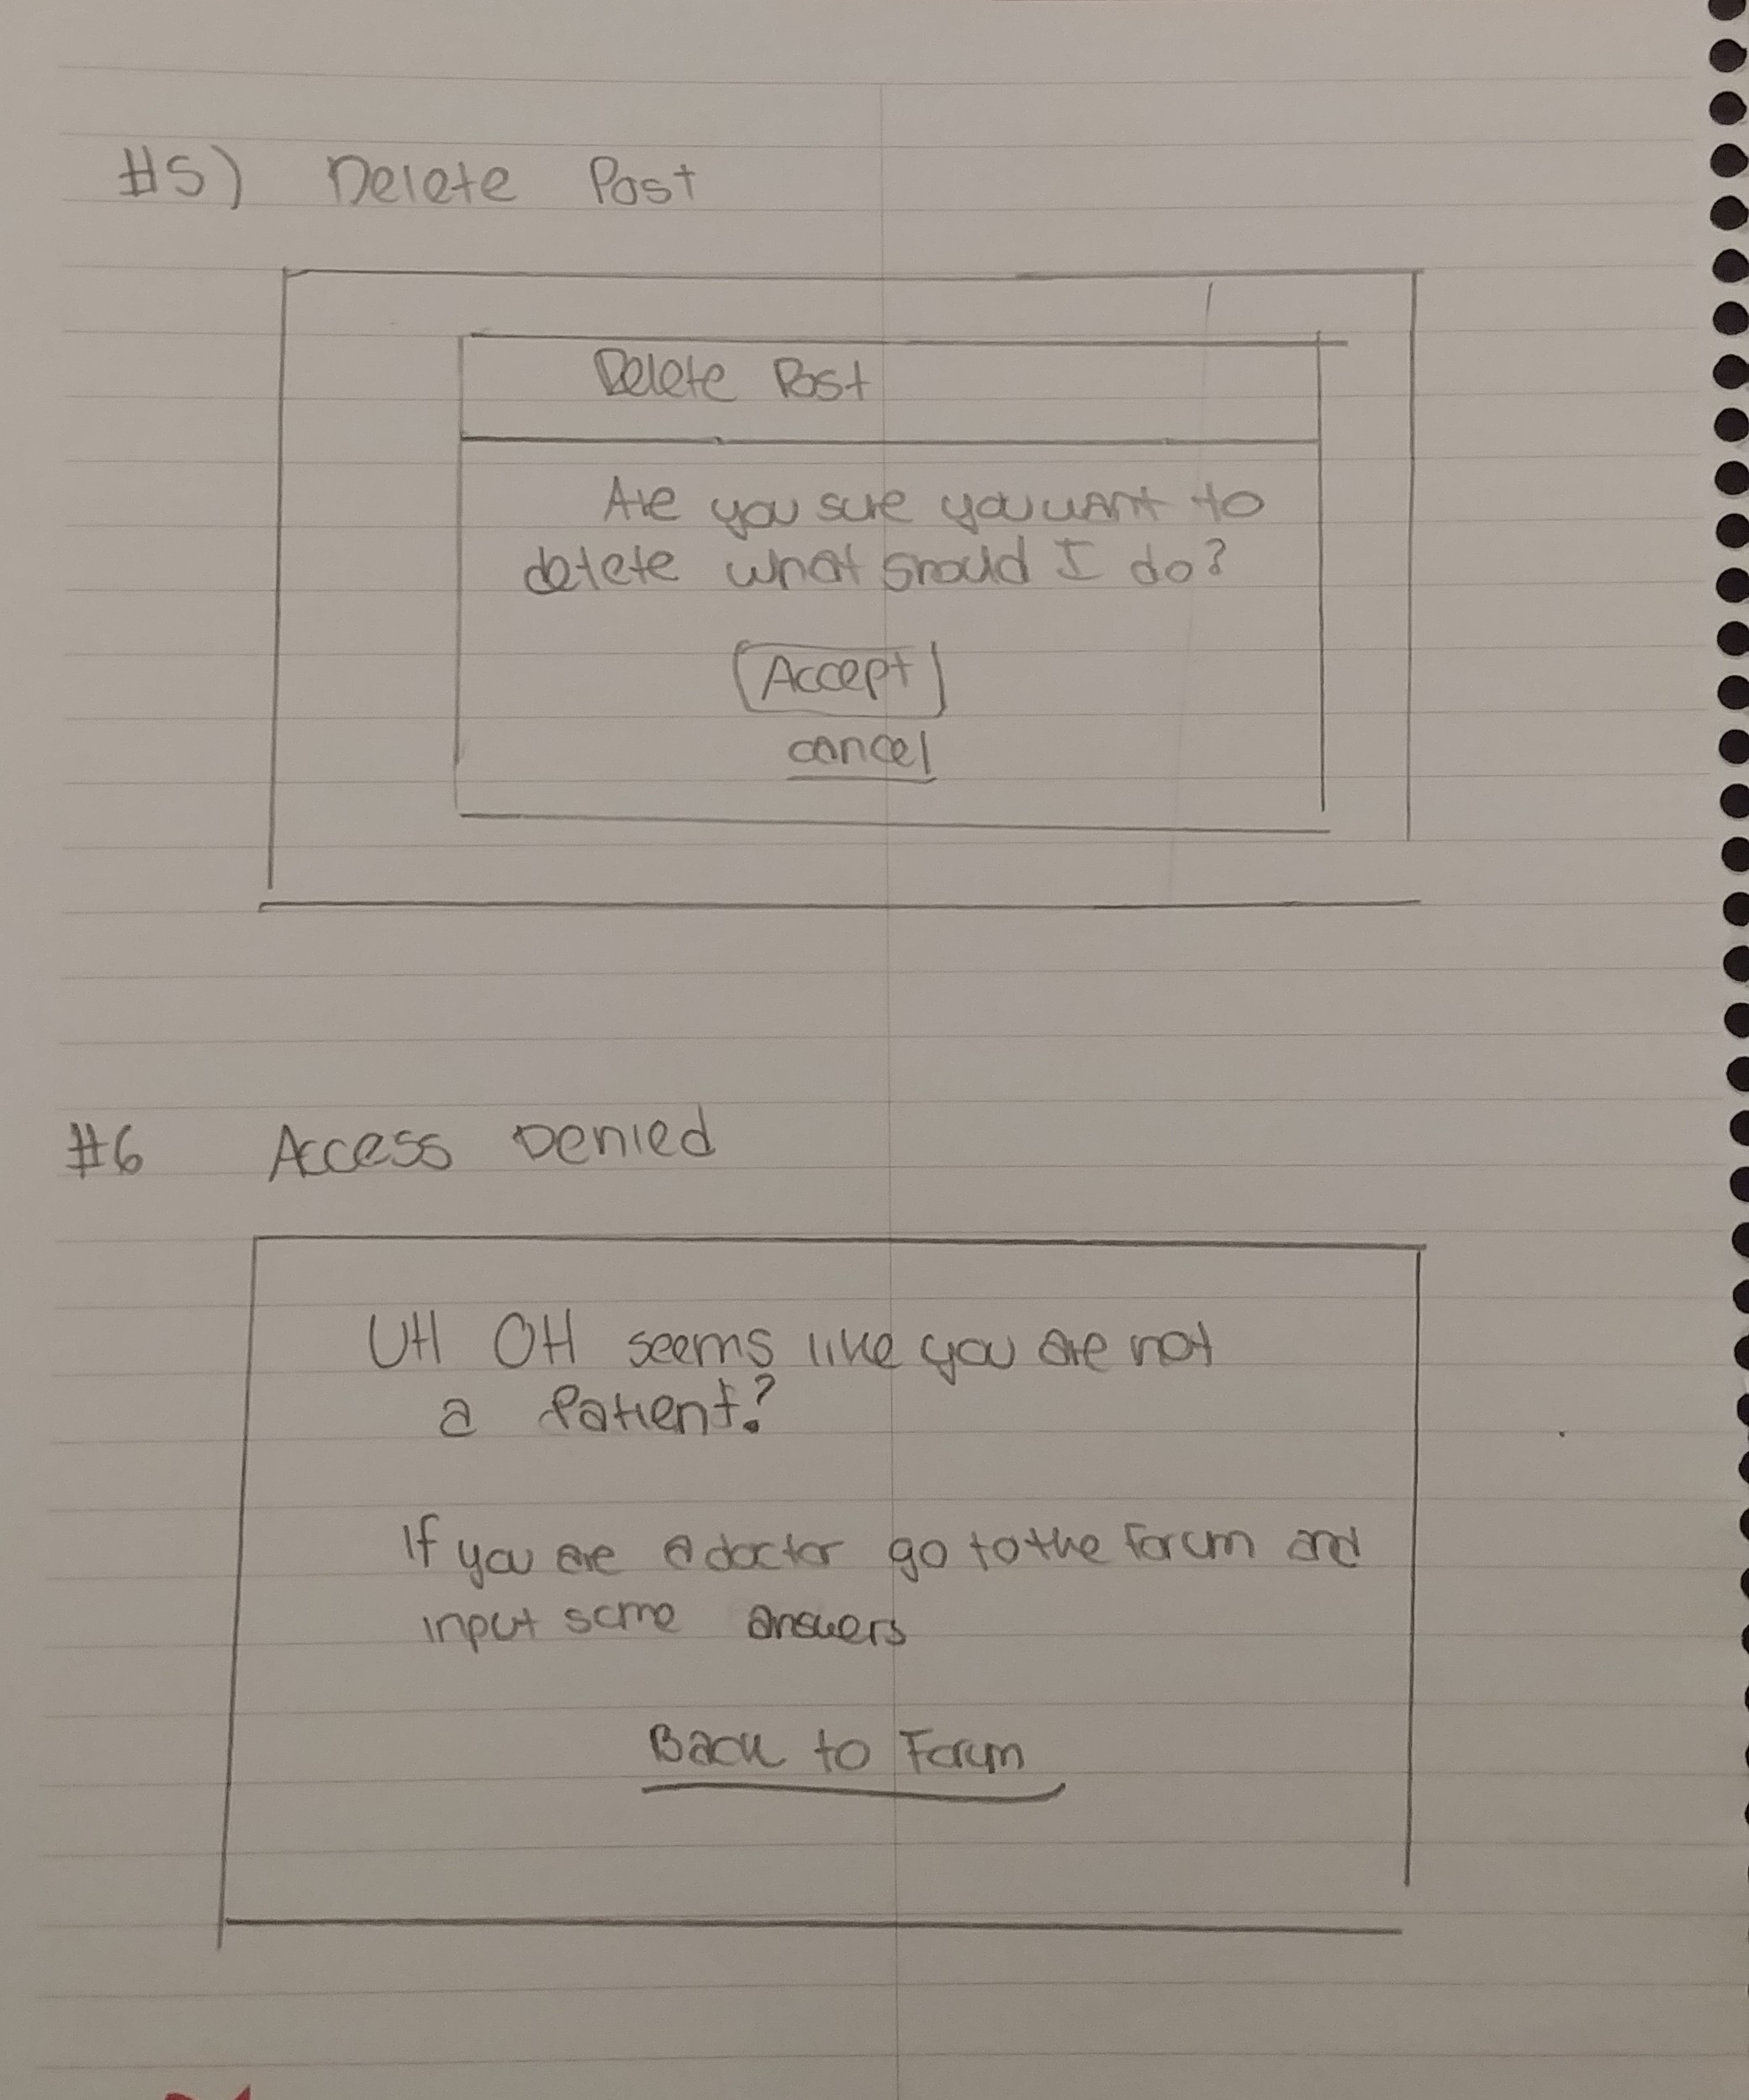 #5) Delete Post
Delete Post
Are you sure you want to
delete what should I do?
Accept
cancel
#6 Access Denied
UH OH seems like you are not
a Patient?
If you are a doctor go to the Forum and
input some answers
Back to Forum